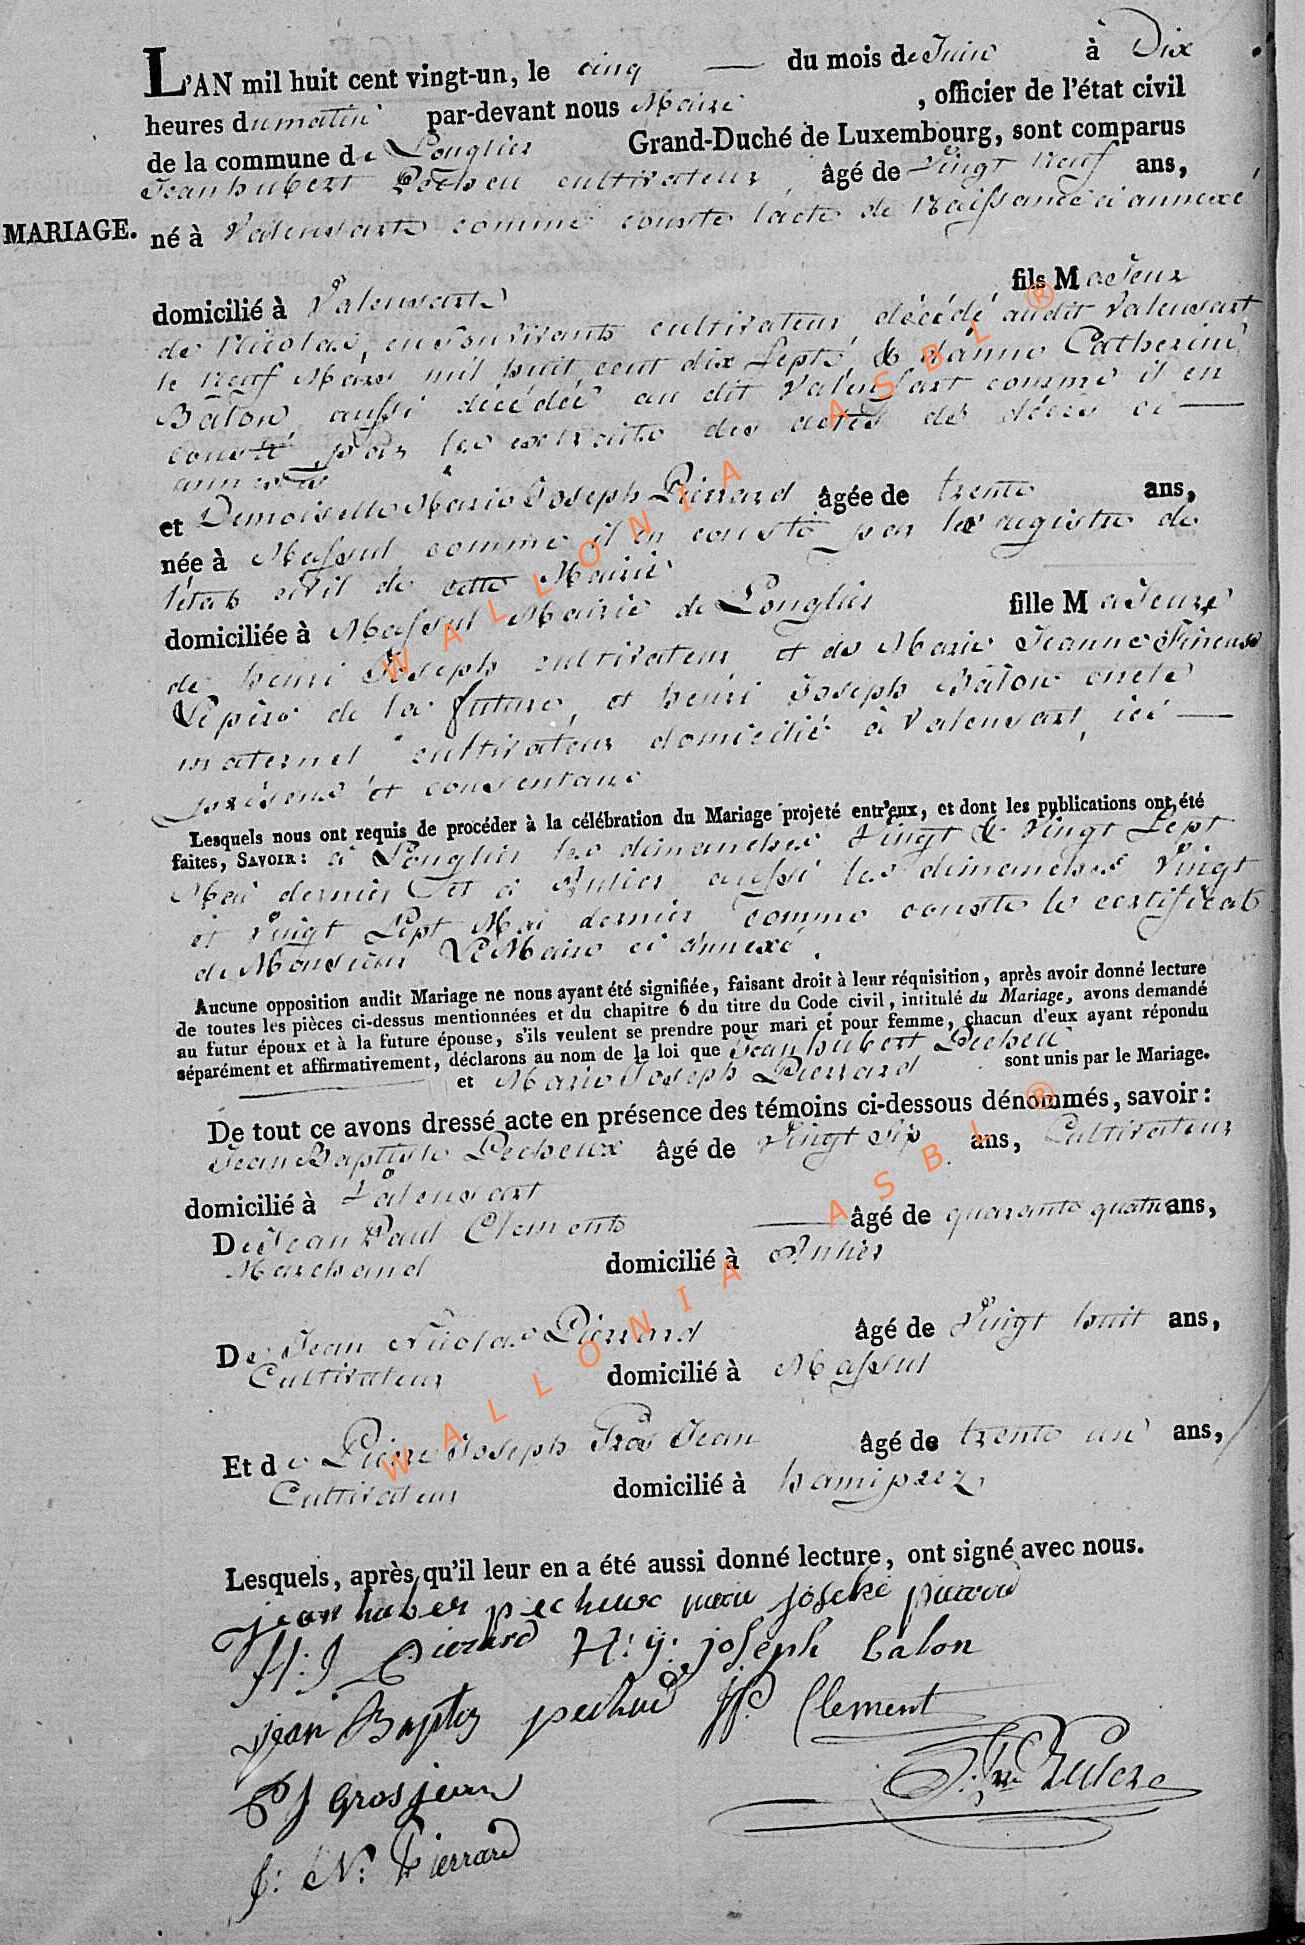 L'AN mil huit cent vingt-un, le cinq — du mois de Juin à Dix
heures du matin par-devant nous Maire , officier de l'état civil
de la commune de Longlier Grand-Duché de Luxembourg, sont comparus
Jean hubert Pecheu cultivateur, âgé de Vingt Neuf ans,
MARIAGE.
né à Valensart comme conste lacte de Naissance ci annexé,
domicilié à Valensart fils Majeur
de Nicolas, en Son vivant cultivateur décédé audit Valensart
le Neuf Mars mil huit cent dix Sept, & danne Catherine
Bâlon aussi décédée au dit Valensart comme il en
conste par les extraits des actes de décès ci —
annexés
et Demoiselle Marie Joseph Pierrard âgée de trente ans,
née à Massul comme il en conste par les registre de
l'état civil de cette Mairie
domiciliée à Massul Mairie de Longlier fille Majeure
de henri Joseph cultivateur et de Marie Jeanne
Le père de la future, et henri Joseph Bâlon oncle
maternel cultivateur domicilié à Valensart, ici —
présens et consentans
Lesquels nous ont requis de procéder à la célébration du Mariage projeté entr'eux, et dont les publications ont été
faites, SAVOIR: à Longlier les dimanches Vingt & Vingt Sept
Mai dernier et à Anlier aussi les dimanches Vingt
et Vingt Sept Mai dernier comme conste le certificat
de Monsieur Le Maire ci annexé.
Aucune opposition audit Mariage ne nous ayant été signifiée, faisant droit à leur réquisition, après avoir donné lecture
de toutes les pièces ci-dessus mentionnées et du chapitre 6 du titre du Code civil, intitulé du Mariage, avons demandé
au futur époux et à la future épouse, s'ils veulent se prendre pour mari et pour femme, chacun d'eux ayant répondu
séparément et affirmativement, déclarons au nom de la loi que Jean hubert Pecheu
et Marie Joseph Pierrard sont unis par le Mariage.
De tout ce avons dressé acte en présence des témoins ci-dessous dénommés, savoir:
Jean Baptiste Pecheux âgé de Vingt Six ans, Cultivateur
domicilié à Valensart
De Jean Paul Clement — âgé de quarante quatre ans,
Marchand domicilié à Anlier
De Jean Nicolas Pierrard âgé de Vingt huit ans,
Cultivateur domicilié à Massul
Et de Pierre Joseph Gros Jean âgé de trente un ans,
Cultivateur domicilié à hamiprez
Lesquels, après qu'il leur en a été aussi donné lecture, ont signé avec nous.
jean huber pecheux marie joseke pierard
H: J Pierard H: y: joseph balon
jean Baptis pechud JP Clement
P J Grosjean
J: N: Pierrard
WALLONIA ASBL ®
WALLONIA ASBL ®